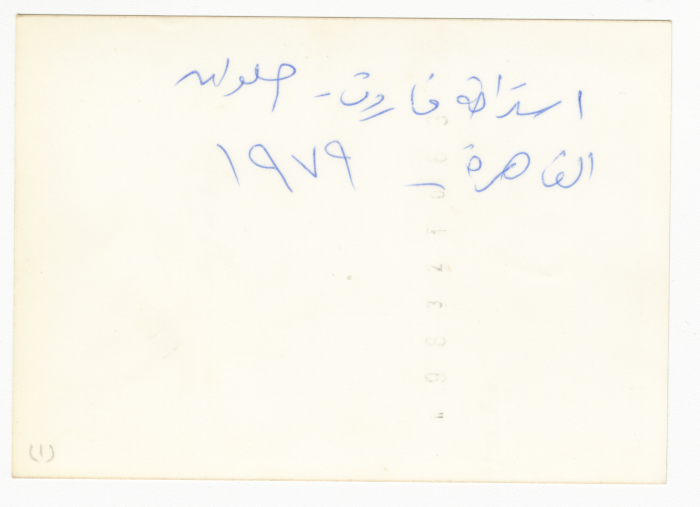 استراحة فاروق - حلوان
القاهرة - ١٩٧٩
(١)